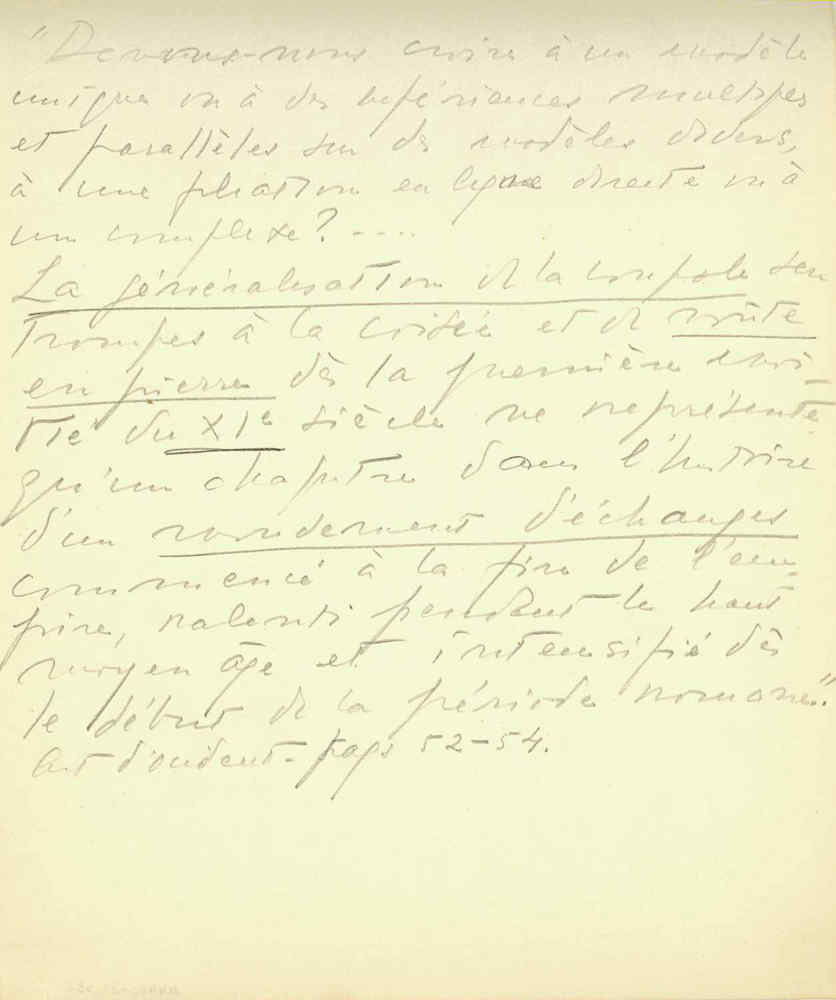 "Devons-nous croire à un modèle
unique ou à des expériences multiples
et parallèles sur des modèles divers,
à une filiation en ligne directe ou à
un complexe? ....
La généralisation de la coupole sur
trompes à la croisée et de voûte
en pierre dès la première moi-
tié du XIe siècle ne représente
qu'un chapitre dans l'histoire
d'un mouvement d'échanges
commencé à la fin de l'em-
pire, ralenti pendant le haut
moyen âge et intensifié dès
le début de la période romane."
Art d'occident - page 52-54.